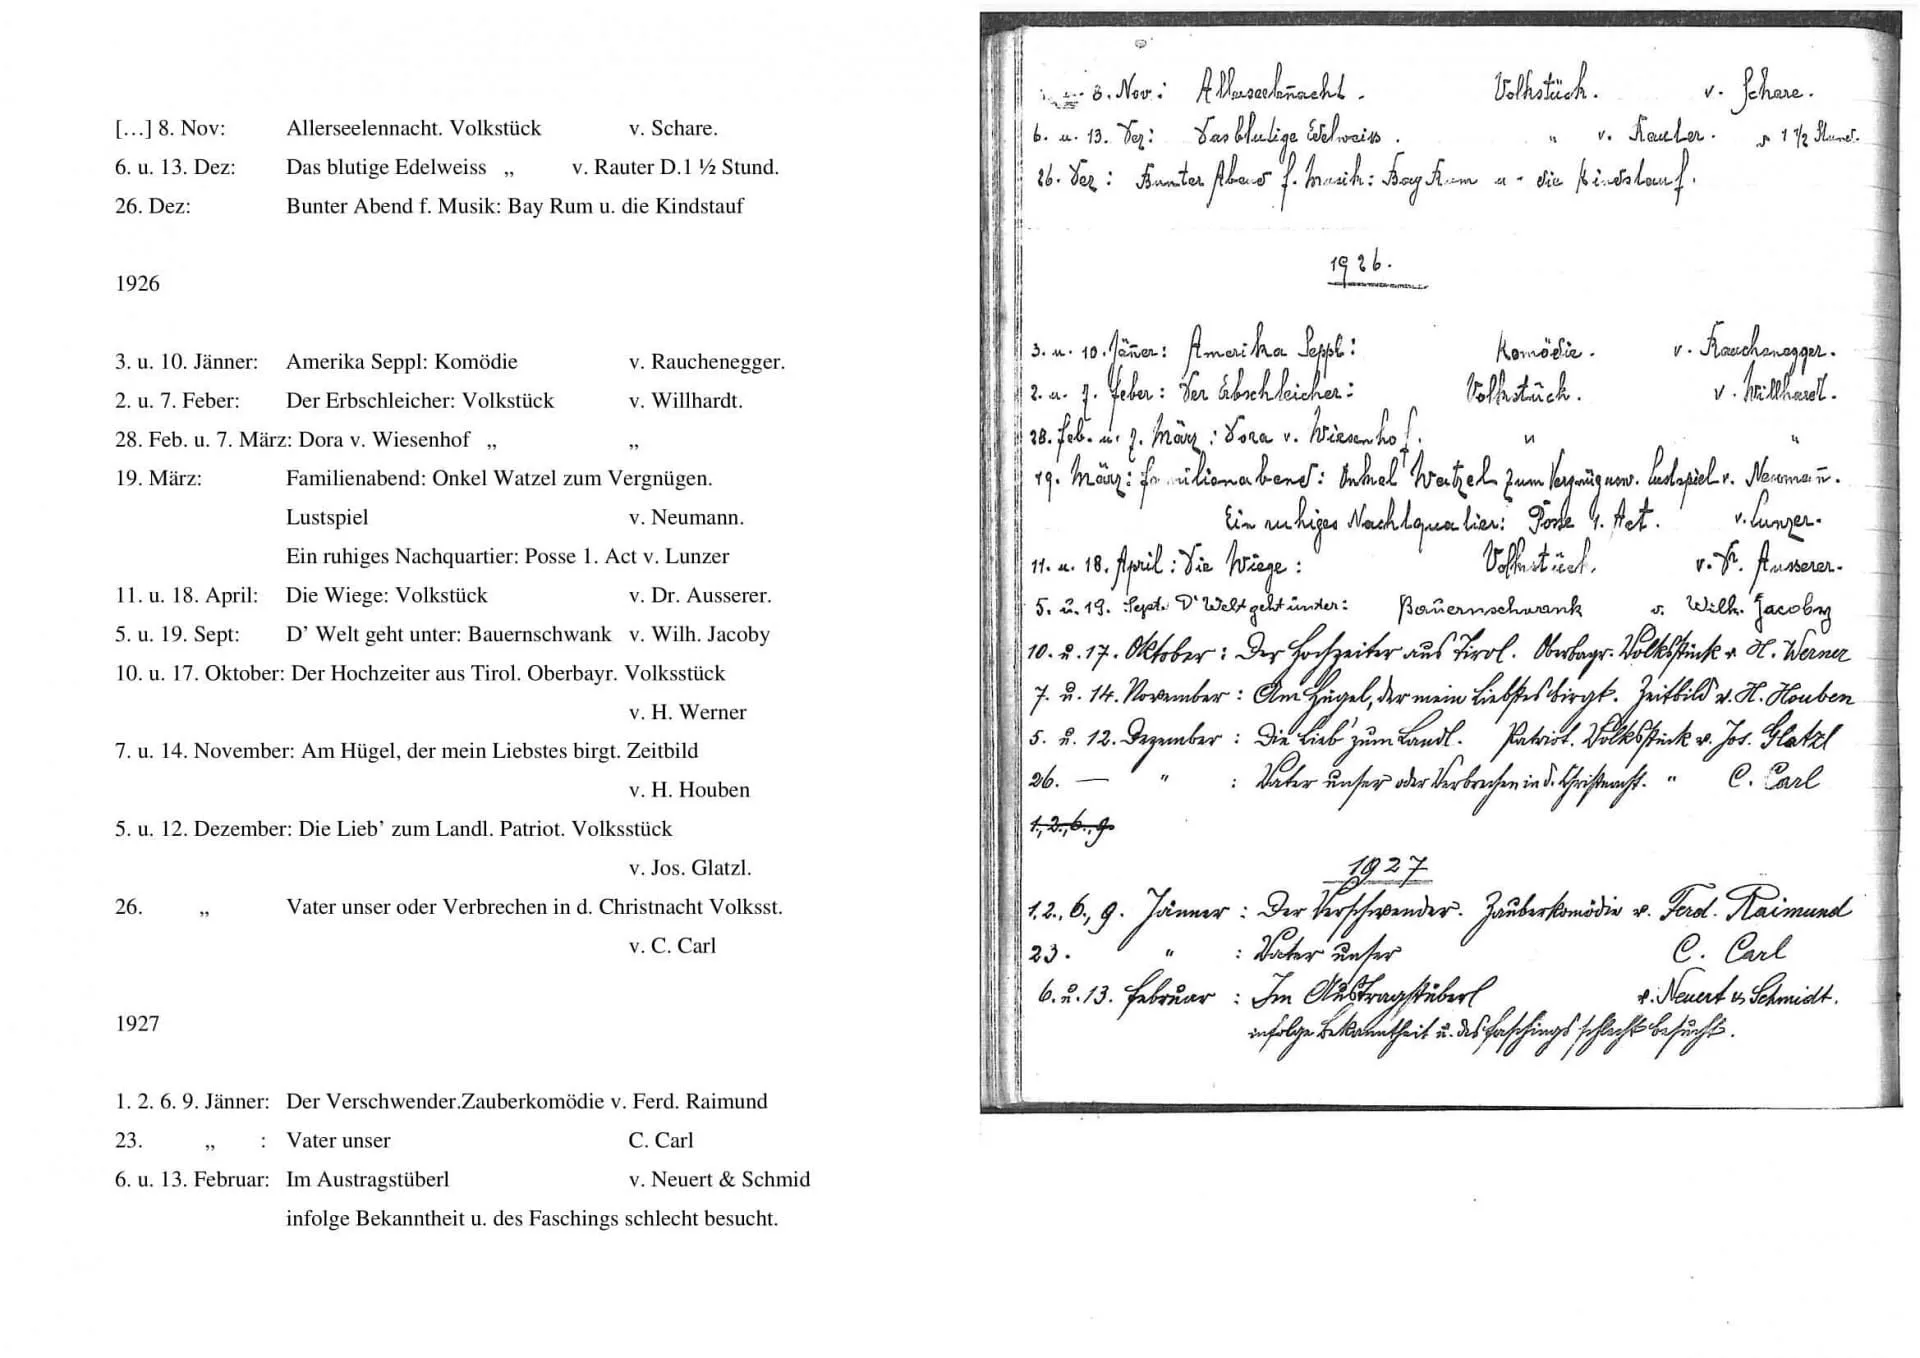 […] 8. Nov: Allerseelennacht. Volkstück v. Schare.
6. u. 13. Dez: Das blutige Edelweiss „ v. Rauter D.1 ½ Stund.
26. Dez: Bunter Abend f. Musik: Bay Rum u. die Kindstauf
1926
3. u. 10. Jänner: Amerika Seppl: Komödie v. Rauchenegger.
2. u. 7. Feber: Der Erbschleicher: Volkstück v. Willhardt.
28. Feb. u. 7. März: Dora v. Wiesenhof „ „
19. März: Familienabend: Onkel Watzel zum Vergnügen.
Lustspiel v. Neumann.
Ein ruhiges Nachquartier: Posse 1. Act v. Lunzer
11. u. 18. April: Die Wiege: Volkstück v. Dr. Ausserer.
5. u. 19. Sept: D’ Welt geht unter: Bauernschwank v. Wilh. Jacoby
10. u. 17. Oktober: Der Hochzeiter aus Tirol. Oberbayr. Volksstück
v. H. Werner
7. u. 14. November: Am Hügel, der mein Liebstes birgt. Zeitbild
v. H. Houben
5. u. 12. Dezember: Die Lieb’ zum Landl. Patriot. Volksstück
v. Jos. Glatzl.
26. „ Vater unser oder Verbrechen in d. Christnacht Volksst.
v. C. Carl
1927
1. 2. 6. 9. Jänner: Der Verschwender.Zauberkomödie v. Ferd. Raimund
23. „ : Vater unser C. Carl
6. u. 13. Februar: Im Austragstüberl v. Neuert & Schmid
infolge Bekanntheit u. des Faschings schlecht besucht.
8. Nov: Allerseelen̄nacht. Volkstück. v. Schare.
6. u. 13. Dez: Das blutige Edelweiss. " v. Rauter. D 1 1/2 Stund.
26. Dez: Bunter Abend f. Musik: Bay Rum u. die Kindstauf.
1926.
3. u. 10. Jän̄er: Amerika Seppl: Komödie. v. Rauchenegger.
2. u. 7. Feber: Der Erbschleicher: Volkstück. v. Willhardt.
28. Feb. u. 7. März: Dora v. Wiesenhof. " "
19. März: Familienabend: Onkel Watzel zum Lustspiel v. Neuman̄.
Ein ruhiges Nachtquatier: Posse 1. Act. v. Lunzer.
11. u. 18. April: Die Wiege: Volkstück. v. Dr. Ausserer.
5. u. 19. Sept. D' Welt geht unter: Bauernschwank v. Wilh. Jacoby
10. u. 17. Oktober: Der Hochzeiter aus Tirol. Oberbayr. Volksstück v. H. Werner
7. u. 14. November: Am Hügel, der mein Liebstes birgt. Zeitbild v. H. Houben
5. u. 12. Dezember: Die Lieb' zum Landl. Patriot. Volksstück v. Jos. Glatzl
26. — " : Vater unser oder Verbrechen in d. Christnacht. " C. Carl
1., 2., 6., 9.
1927
1. 2., 6., 9. Jänner: Der Verschwender. Zauberkomödie v. Ferd. Raimund
23. " : Vater unser C. Carl
6. u. 13. Februar: Im Austragstüberl v. Neuert & Schmidt.
infolge Bekanntheit u. des Faschings schlecht besucht.